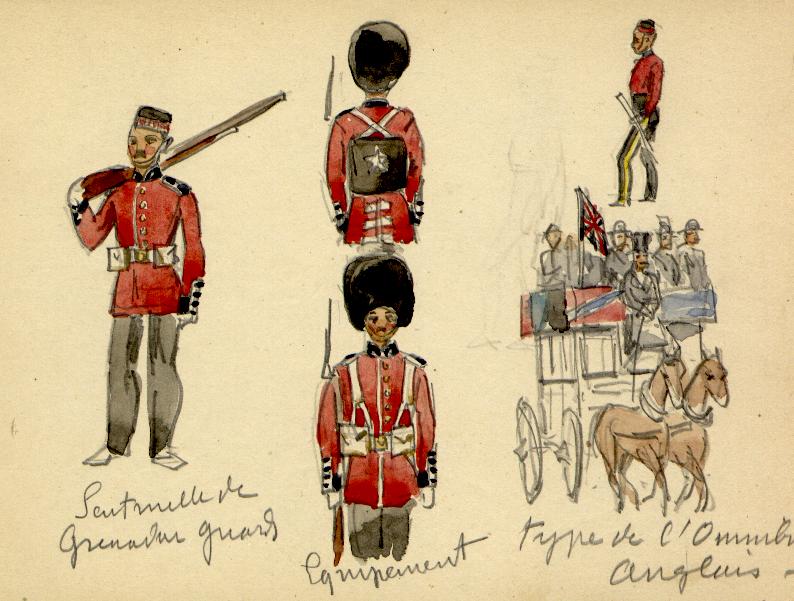 Sentinelle de
Grenadier guards
Equipement
type de l'Omnib
Anglais -